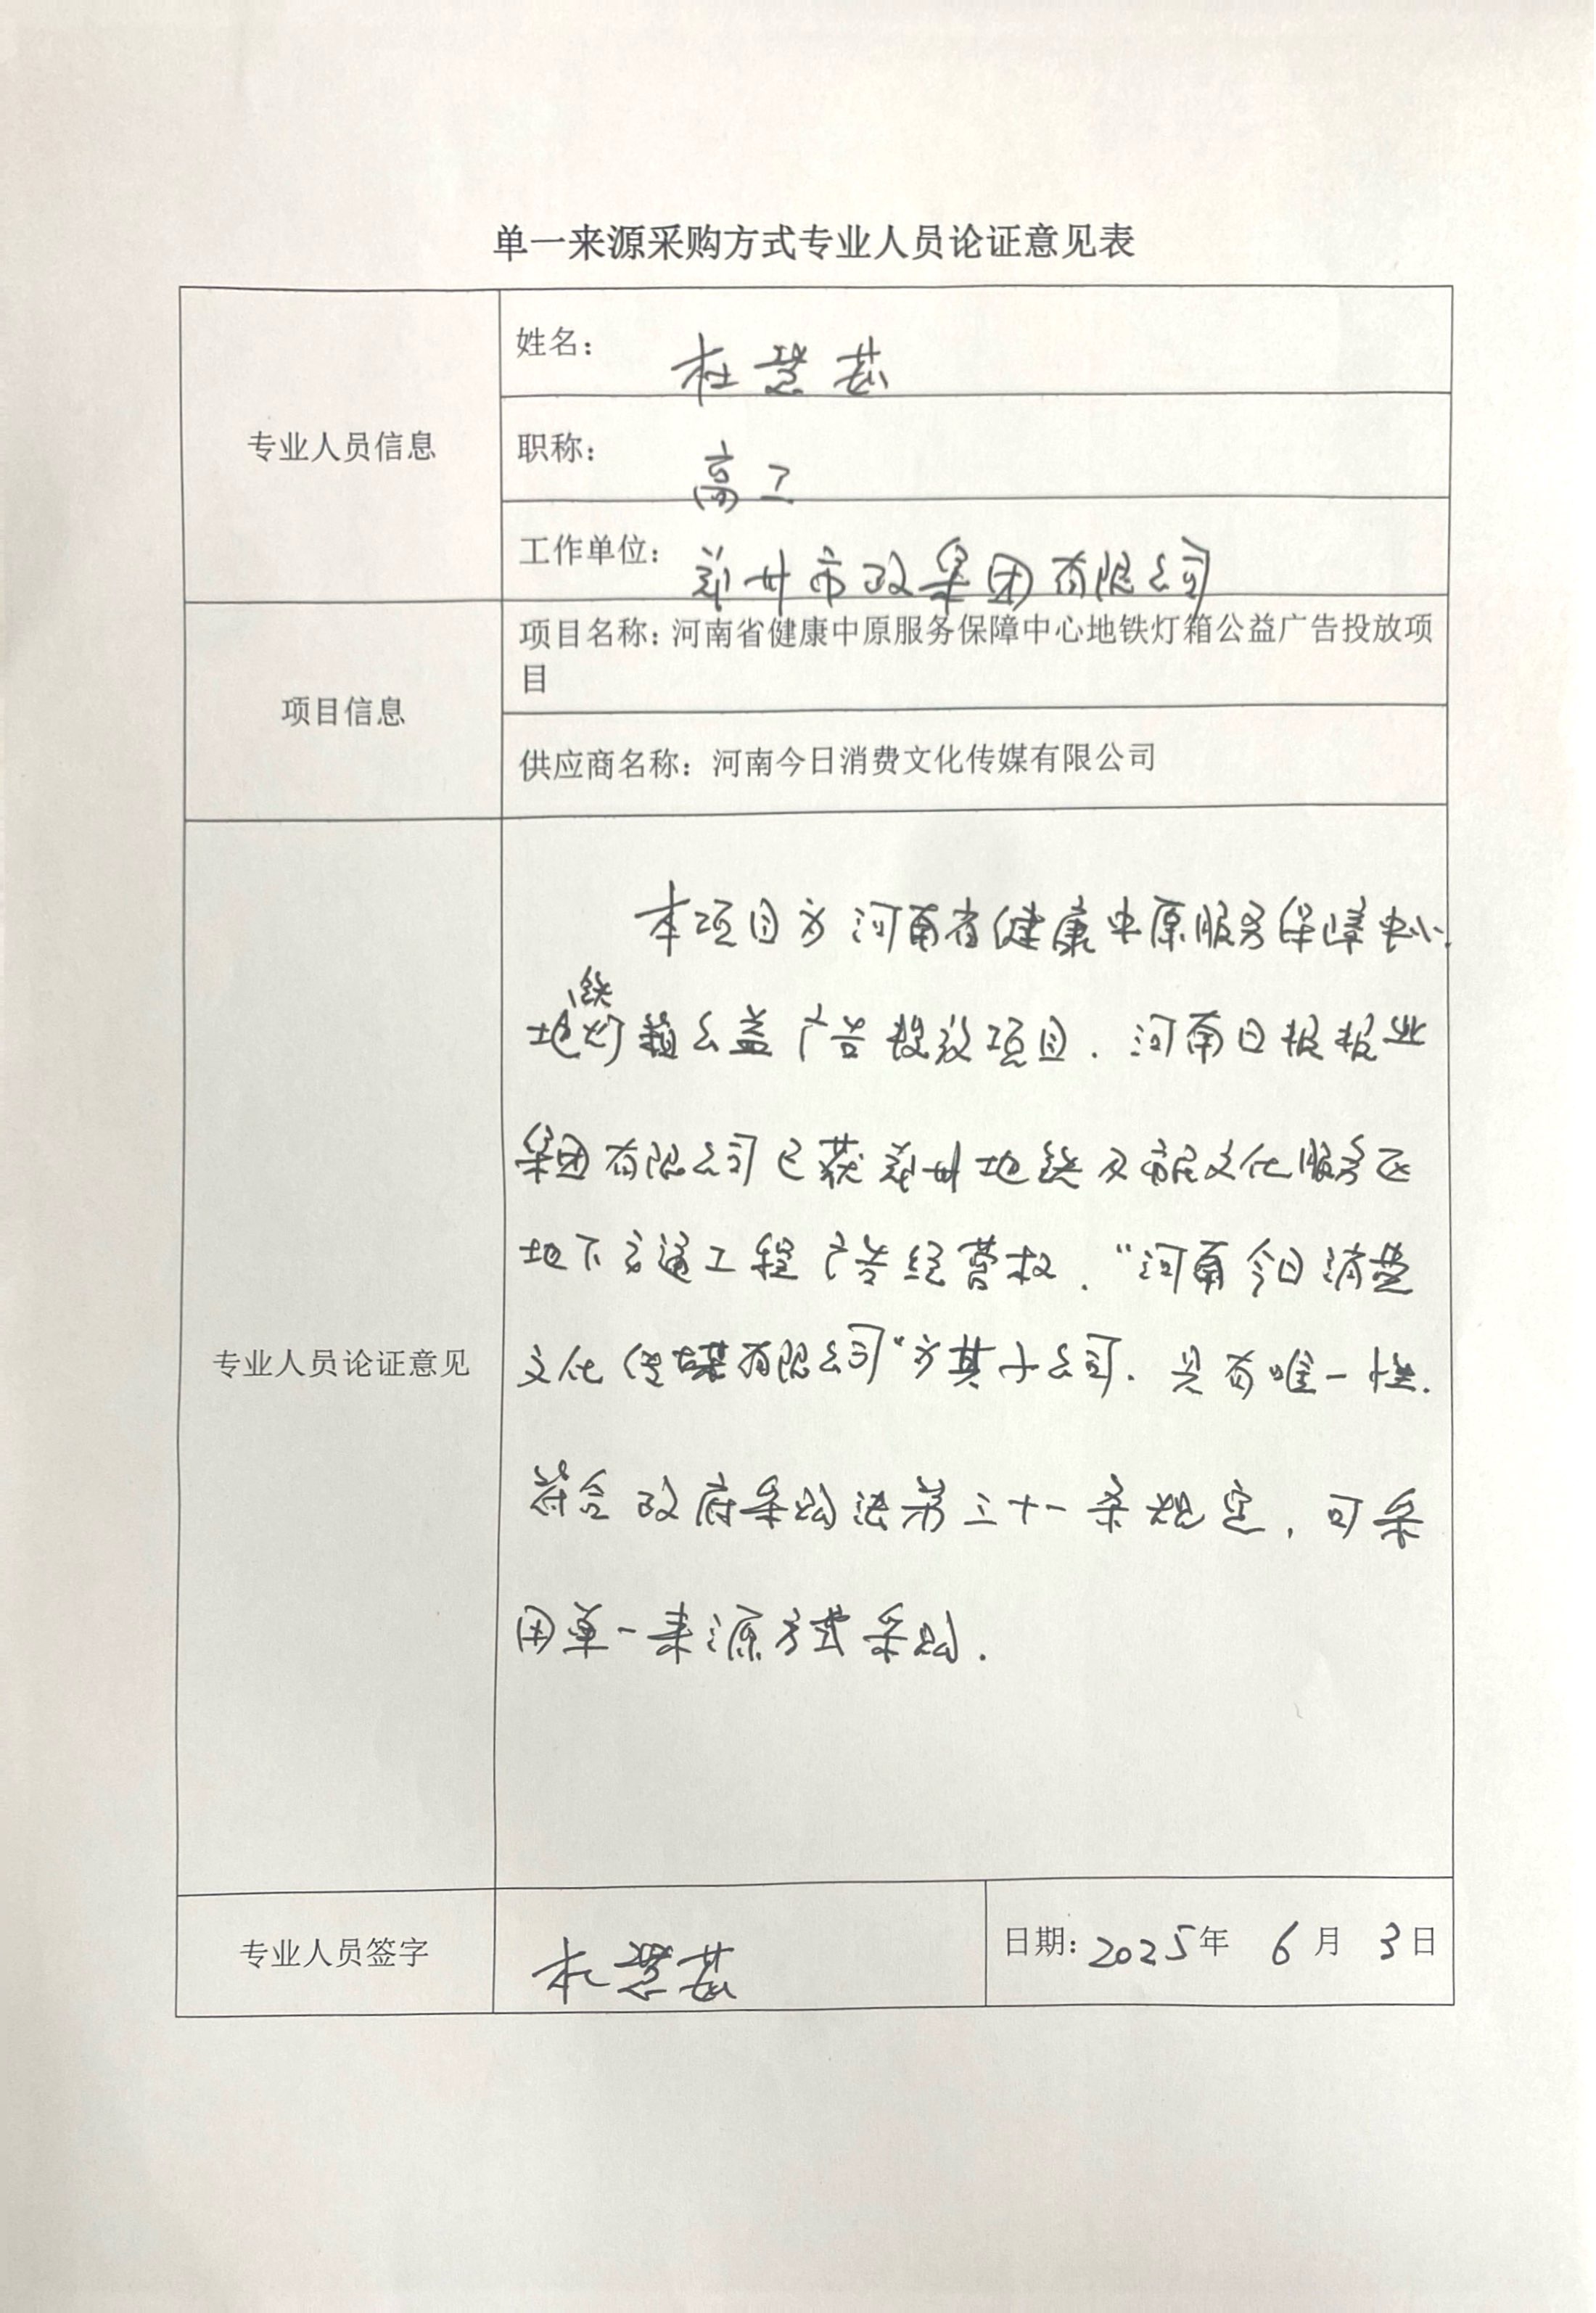 单一来源采购方式专业人员论证意见表
专业人员信息
姓名： 杜慧茹
职称： 高工
工作单位： 郑州市政集团有限公司
项目信息
项目名称：河南省健康中原服务保障中心地铁灯箱公益广告投放项
目
供应商名称：河南今日消费文化传媒有限公司
专业人员论证意见
本项目为河南省健康中原服务保障中心
地铁灯箱公益广告投放项目．河南日报报业
集团有限公司已获郑州地铁及市民文化服务区
地下交通工程广告经营权．“河南今日消费
文化传媒有限公司”为其子公司．具有唯一性．
符合政府采购法第三十一条规定，可采
用单一来源方式采购．
专业人员签字
杜慧茹
日期：2025年 6月 3日